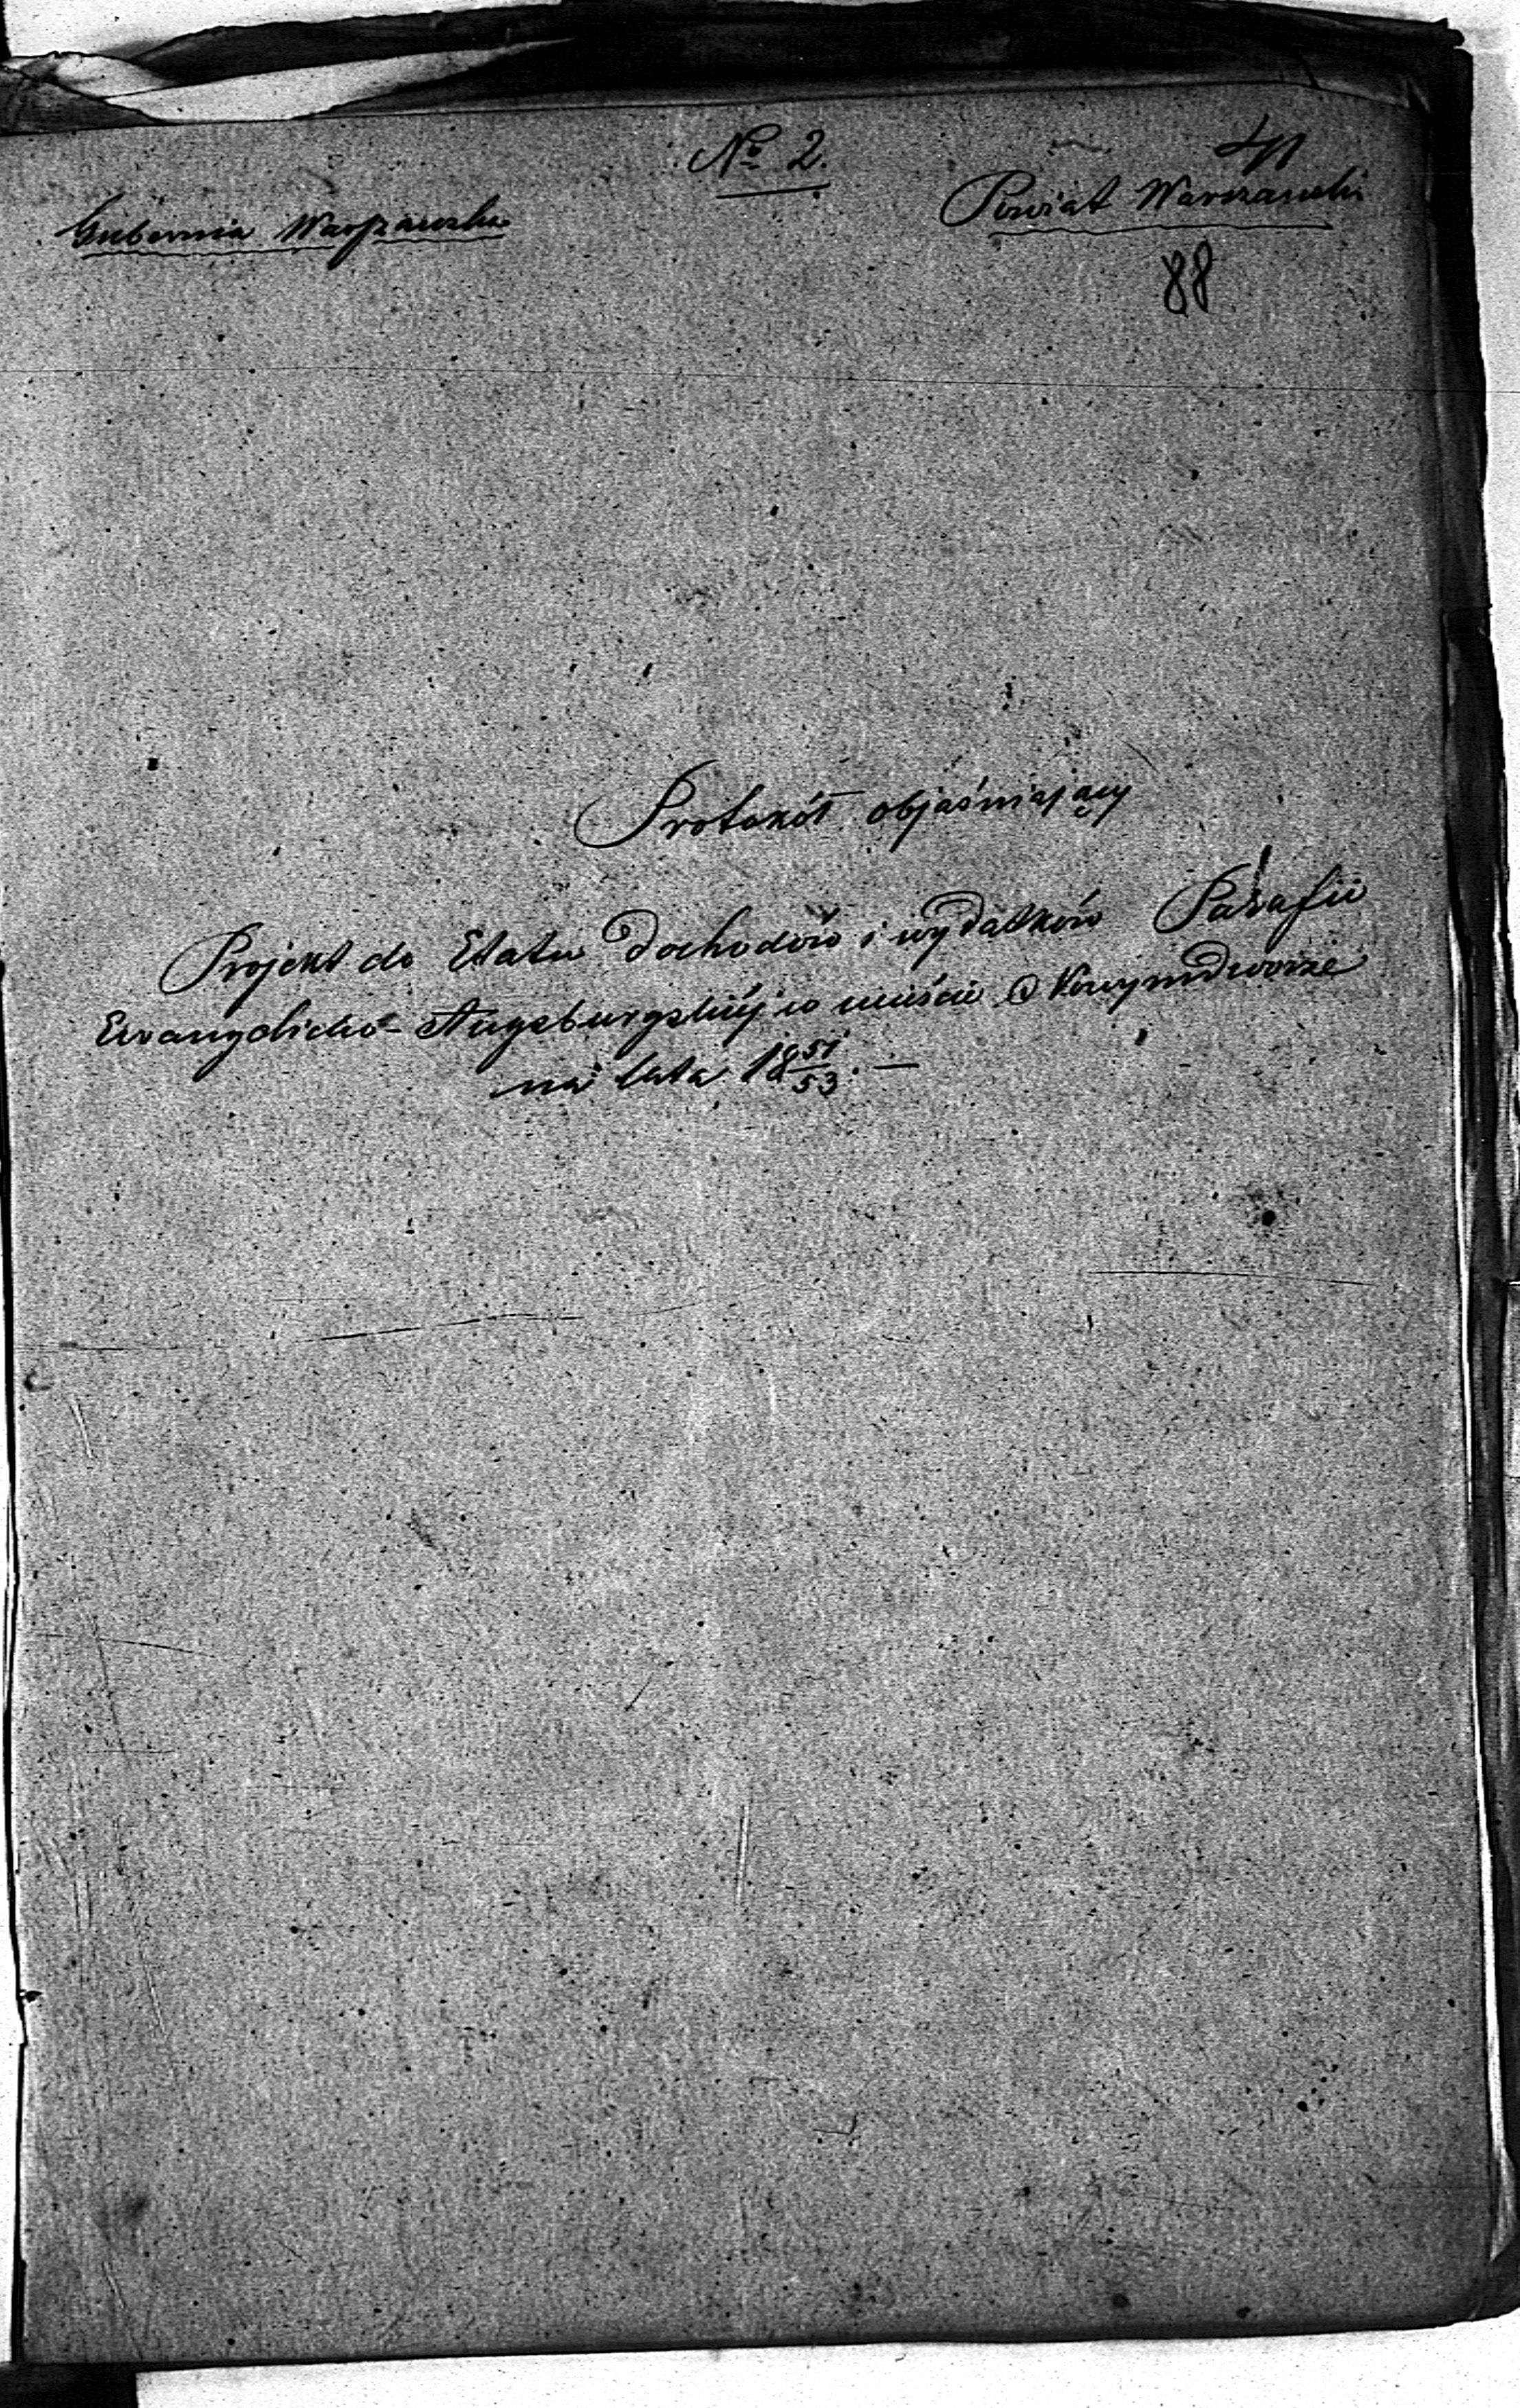 No 2.
Powiat Warszawski
Gubernia Warszawska
88
Protokół objaśniający
Projekt do Etatu dochodów i wydatków Parafii
Ewangelicko-Augsburgskiéj w mieście Nowymdworze
na lata 18 51/53. —